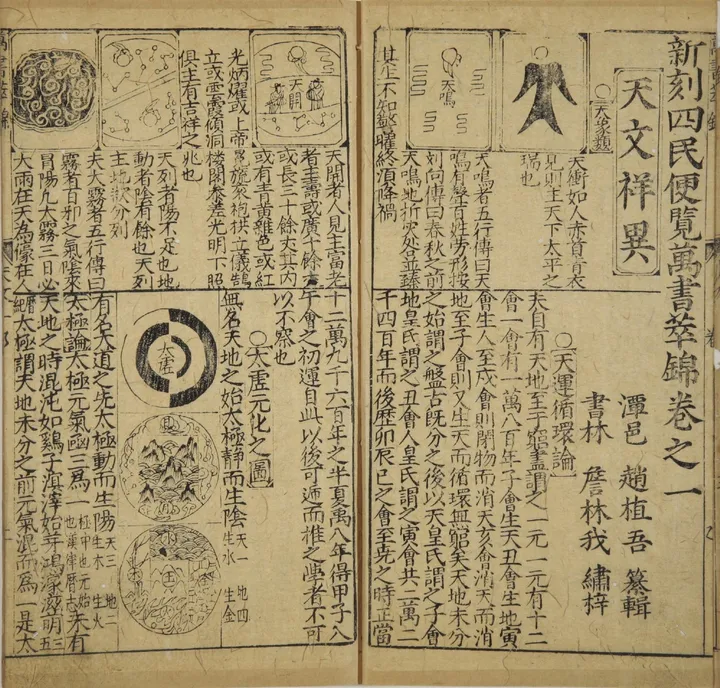 新刻四民便覽萬書萃錦卷之一
潭邑 趙植吾 纂輯
書林 詹林我 繡梓
天文祥異
○天象類
天衝如人赤首青衣
見則主天下太平之
瑞也
天鳴
天鳴者五行傳曰天
鳴有聲百姓勞形按
劉向傳曰春秋之前
天鳴地拆並臻
其主不知警曜終湏降禍
○天運循環論
夫自有天地至于窮盡謂之一元一元有十二
會一會有一萬八百年子會生天丑會生地寅
會生人至戌會則閉物而消天亥會消天而消
地至子會則又生天而循環無窮矣天地未分
之始謂之盤古既分之後以天皇氏謂之子會
地皇氏謂之丑會人皇氏謂之寅會共三萬二
千四百年而後歷卯辰巳之會至堯之時正當
天開
天開者人見主富老
者主壽或廣十餘丈
或長三十餘丈其內
或有青黃雜色或紅
光炳耀或上帝
冕旒袞袍拱立儀鵠
立或雲霞傾洞
樓閣參差光明下照
俱主有吉祥之
兆也
天列者陽不足也地
動者陰有餘也天列
主地欲分列
夫大霧者五行傳曰
霧者百邪之氣陰來
冒陽凡大霧三日必
大雨在天為濛在人
十二萬九千六百年之半夏萬八年得甲子八
午會之初運自此以後可遞而推之學者不可
以不察也
○太虛元化之圖
無名天地之始太極靜而生陰 天一生水 地四生金
太虛
有名大道之先太極動而生陽 天三生木 地二生火
太極論太極元氣極三為一 極中也元始也漢律曆志 未有
天地之時混沌如鷄子溟滓始芽鴻濛滋萌三五
曆太極謂天地未分之前元氣混而為一是太